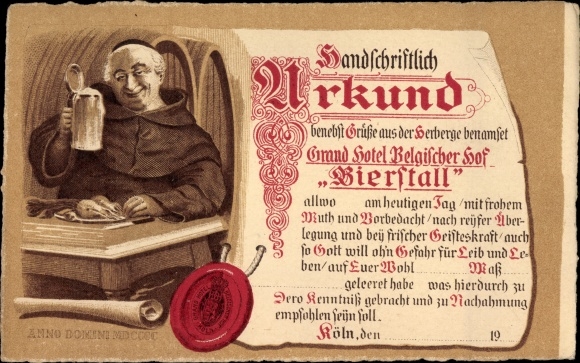 Handschriftlich
Urkund
benebst Grüße aus der Herberge benamset
Grand Hotel Belgischer Hof
„Bierstall"
allwo am heutigen Tag/mit frohem
Muth und Vorbedacht/nach reifer Über-
legung und beÿ frischer Geisteskraft/auch
so Gott will ohn Gefahr für Leib und Le-
ben/auf Euer Wohl Maß
geleeret habe was hierdurch zu
Dero Kenntniß gebracht und zu Nachahmung
empfohlen seÿn soll.
Köln, den 19
ANNO DOMINI MDCCCC